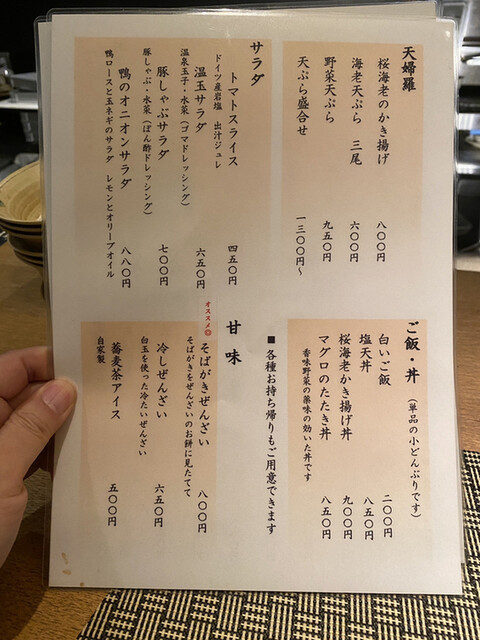 天婦羅
桜海老のかき揚げ 八〇〇円
海老天ぷら 三尾 六〇〇円
野菜天ぷら 九五〇円
天ぷら盛合せ 一三〇〇円～
サラダ
トマトスライス 四五〇円
ドイツ産岩塩 出汁ジュレ
温玉サラダ 六五〇円
温泉玉子・水菜(ゴマドレッシング)
豚しゃぶサラダ 七〇〇円
豚しゃぶ・水菜(ぽん酢ドレッシング)
鴨のオニオンサラダ 八八〇円
鴨ロースと玉ネギのサラダ レモンとオリーブオイル
ご飯・丼 (単品の小どんぶりです)
白いご飯 二〇〇円
塩天丼 八五〇円
桜海老かき揚げ丼 九〇〇円
マグロのたたき丼 八五〇円
香味野菜の薬味の効いた丼です
■各種お持ち帰りもご用意できます
甘味
オススメ
そばがきぜんざい 八〇〇円
そばがきをぜんざいのお餅に見たてて
冷しぜんざい 六五〇円
白玉を使った冷たいぜんざい
蕎麦茶アイス 五〇〇円
自家製